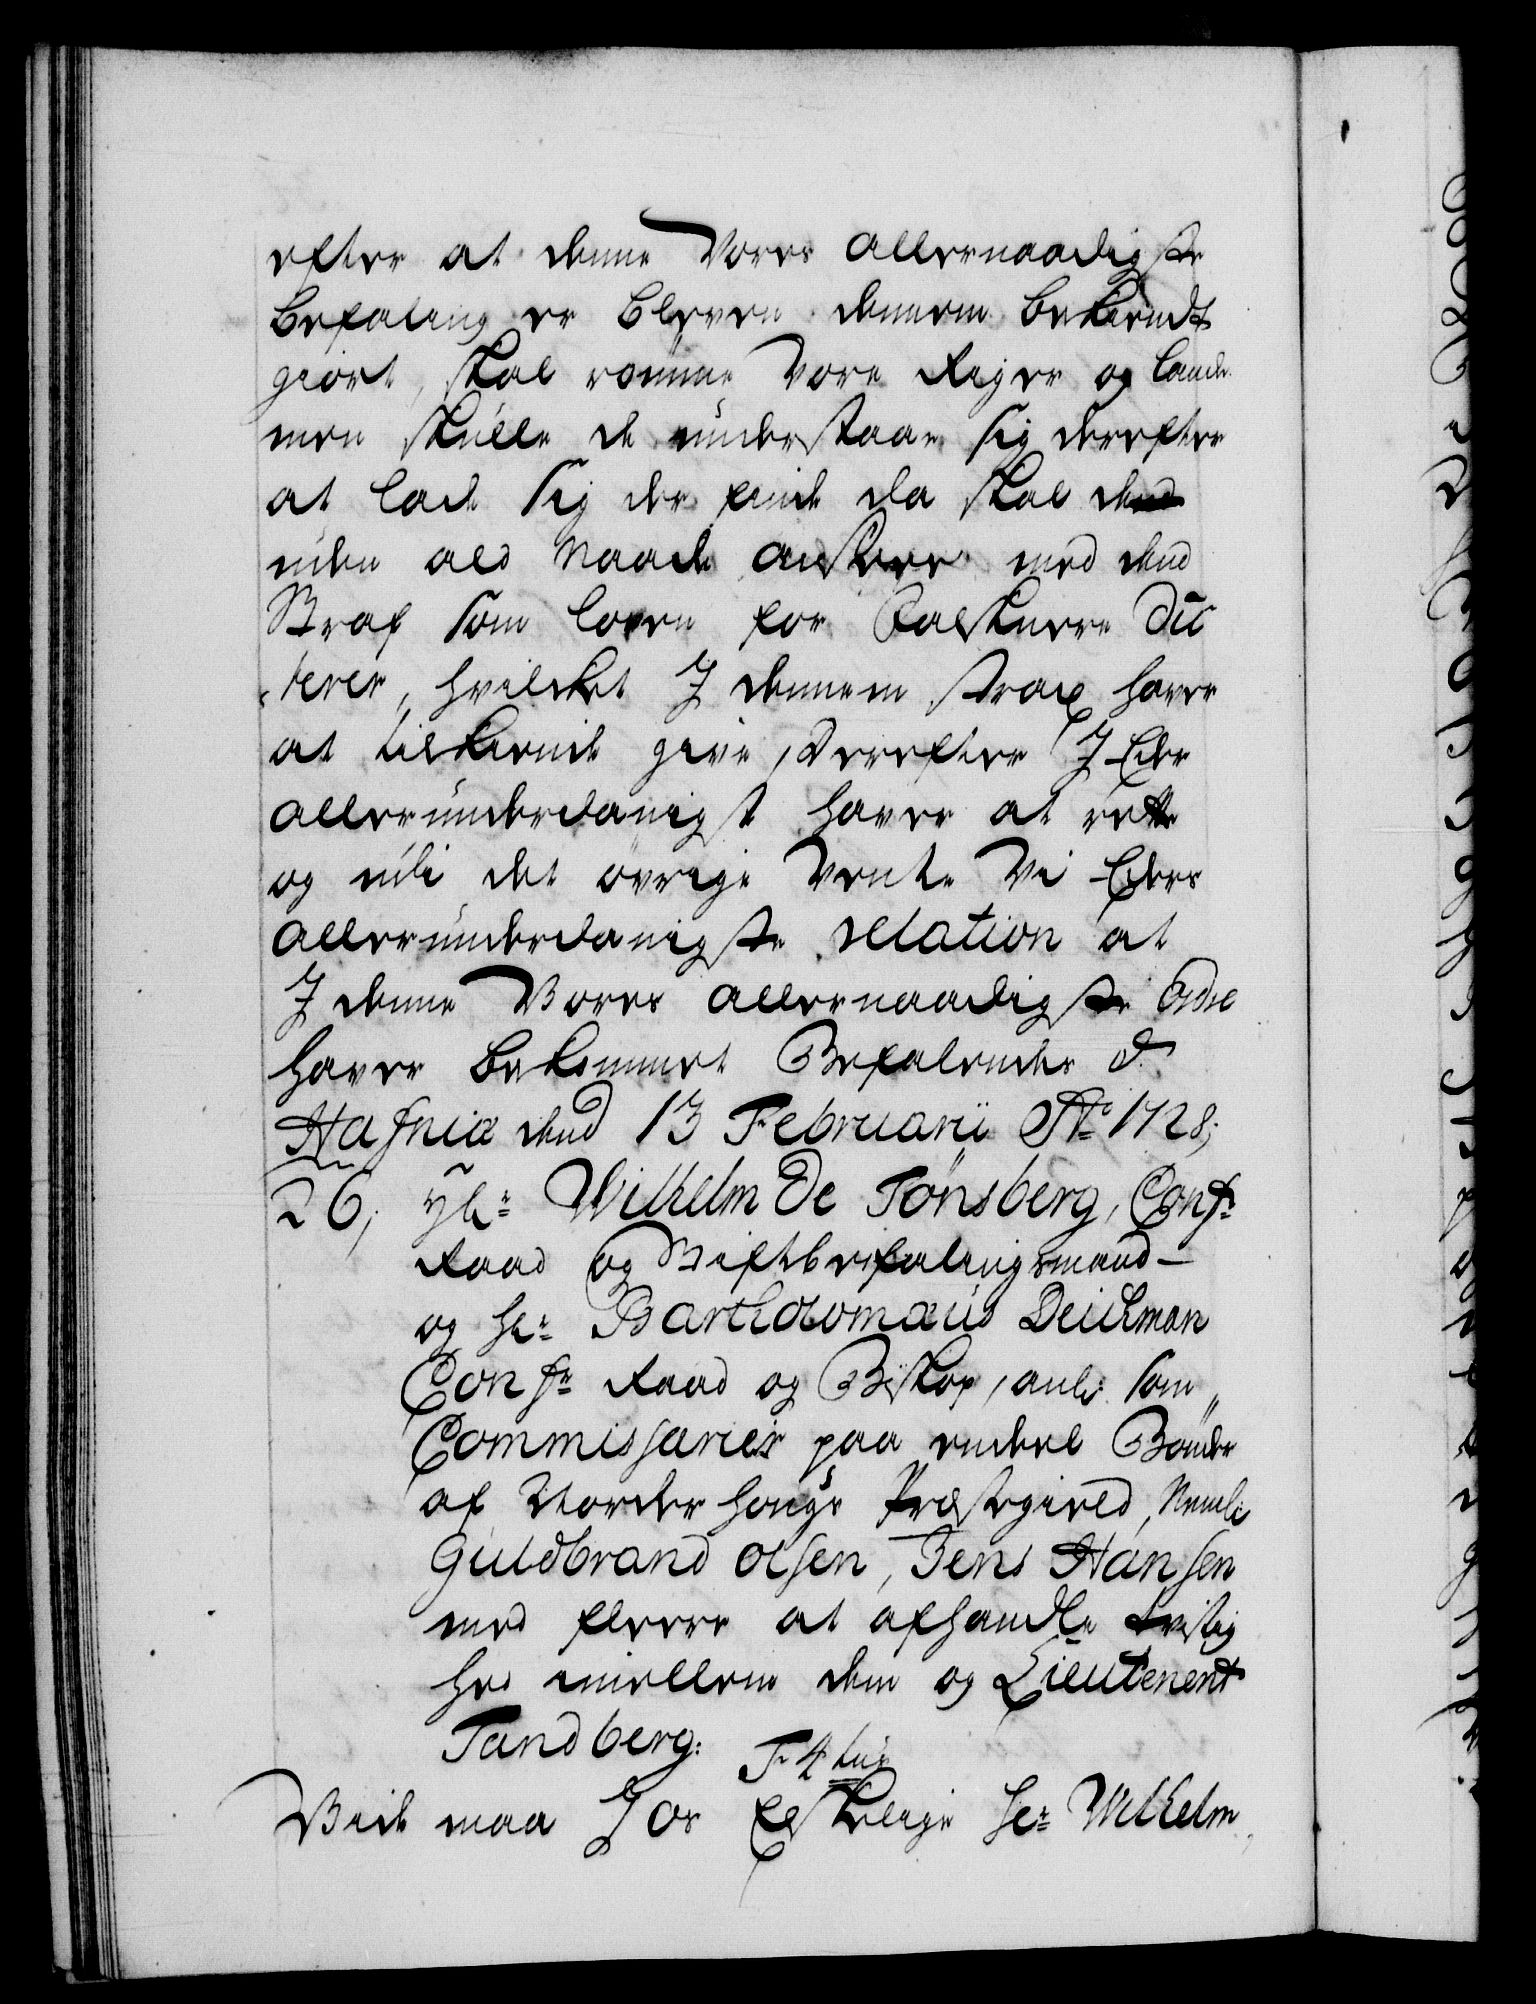 efter at denne Vores allernaadigste
befaling er bleven dennem bekiendt
giort, skal rømme Vore Riger og lande
men skulle de understaae sig derefter
at lade sig der finde da skal de
uden ald Naade ansees med dend
Straf som loven for dic
terer, hvilcket I dennem strax haver
at tilkiende give, Derefter I Eder
allerunderdanigst haver at rette
og udi det øvrige Vente Vi Eders
allerunderdanigste relation at
I denne Vores allernaadigste
haver bekommet Befalendes &
Hafniæ dend 13 Februarii Ao 1728;
26, Wilhelm De Tønsberg, Conf:
Raad og Stiftbefalingsmand
og Hr: Bartholomæus Deichman
Conf: Raad og Biskop, anl: som
Commissarier paa endeel Bønder
af Norderhougs Præstegield, Nemlig
Guldbrand Olsen, Jens Hansen
med fleere at afhandle tvistig
hed imellem dem og Lieutenent
Tandberg:
Vide maa I os Elskelige Hr: Wilhelm